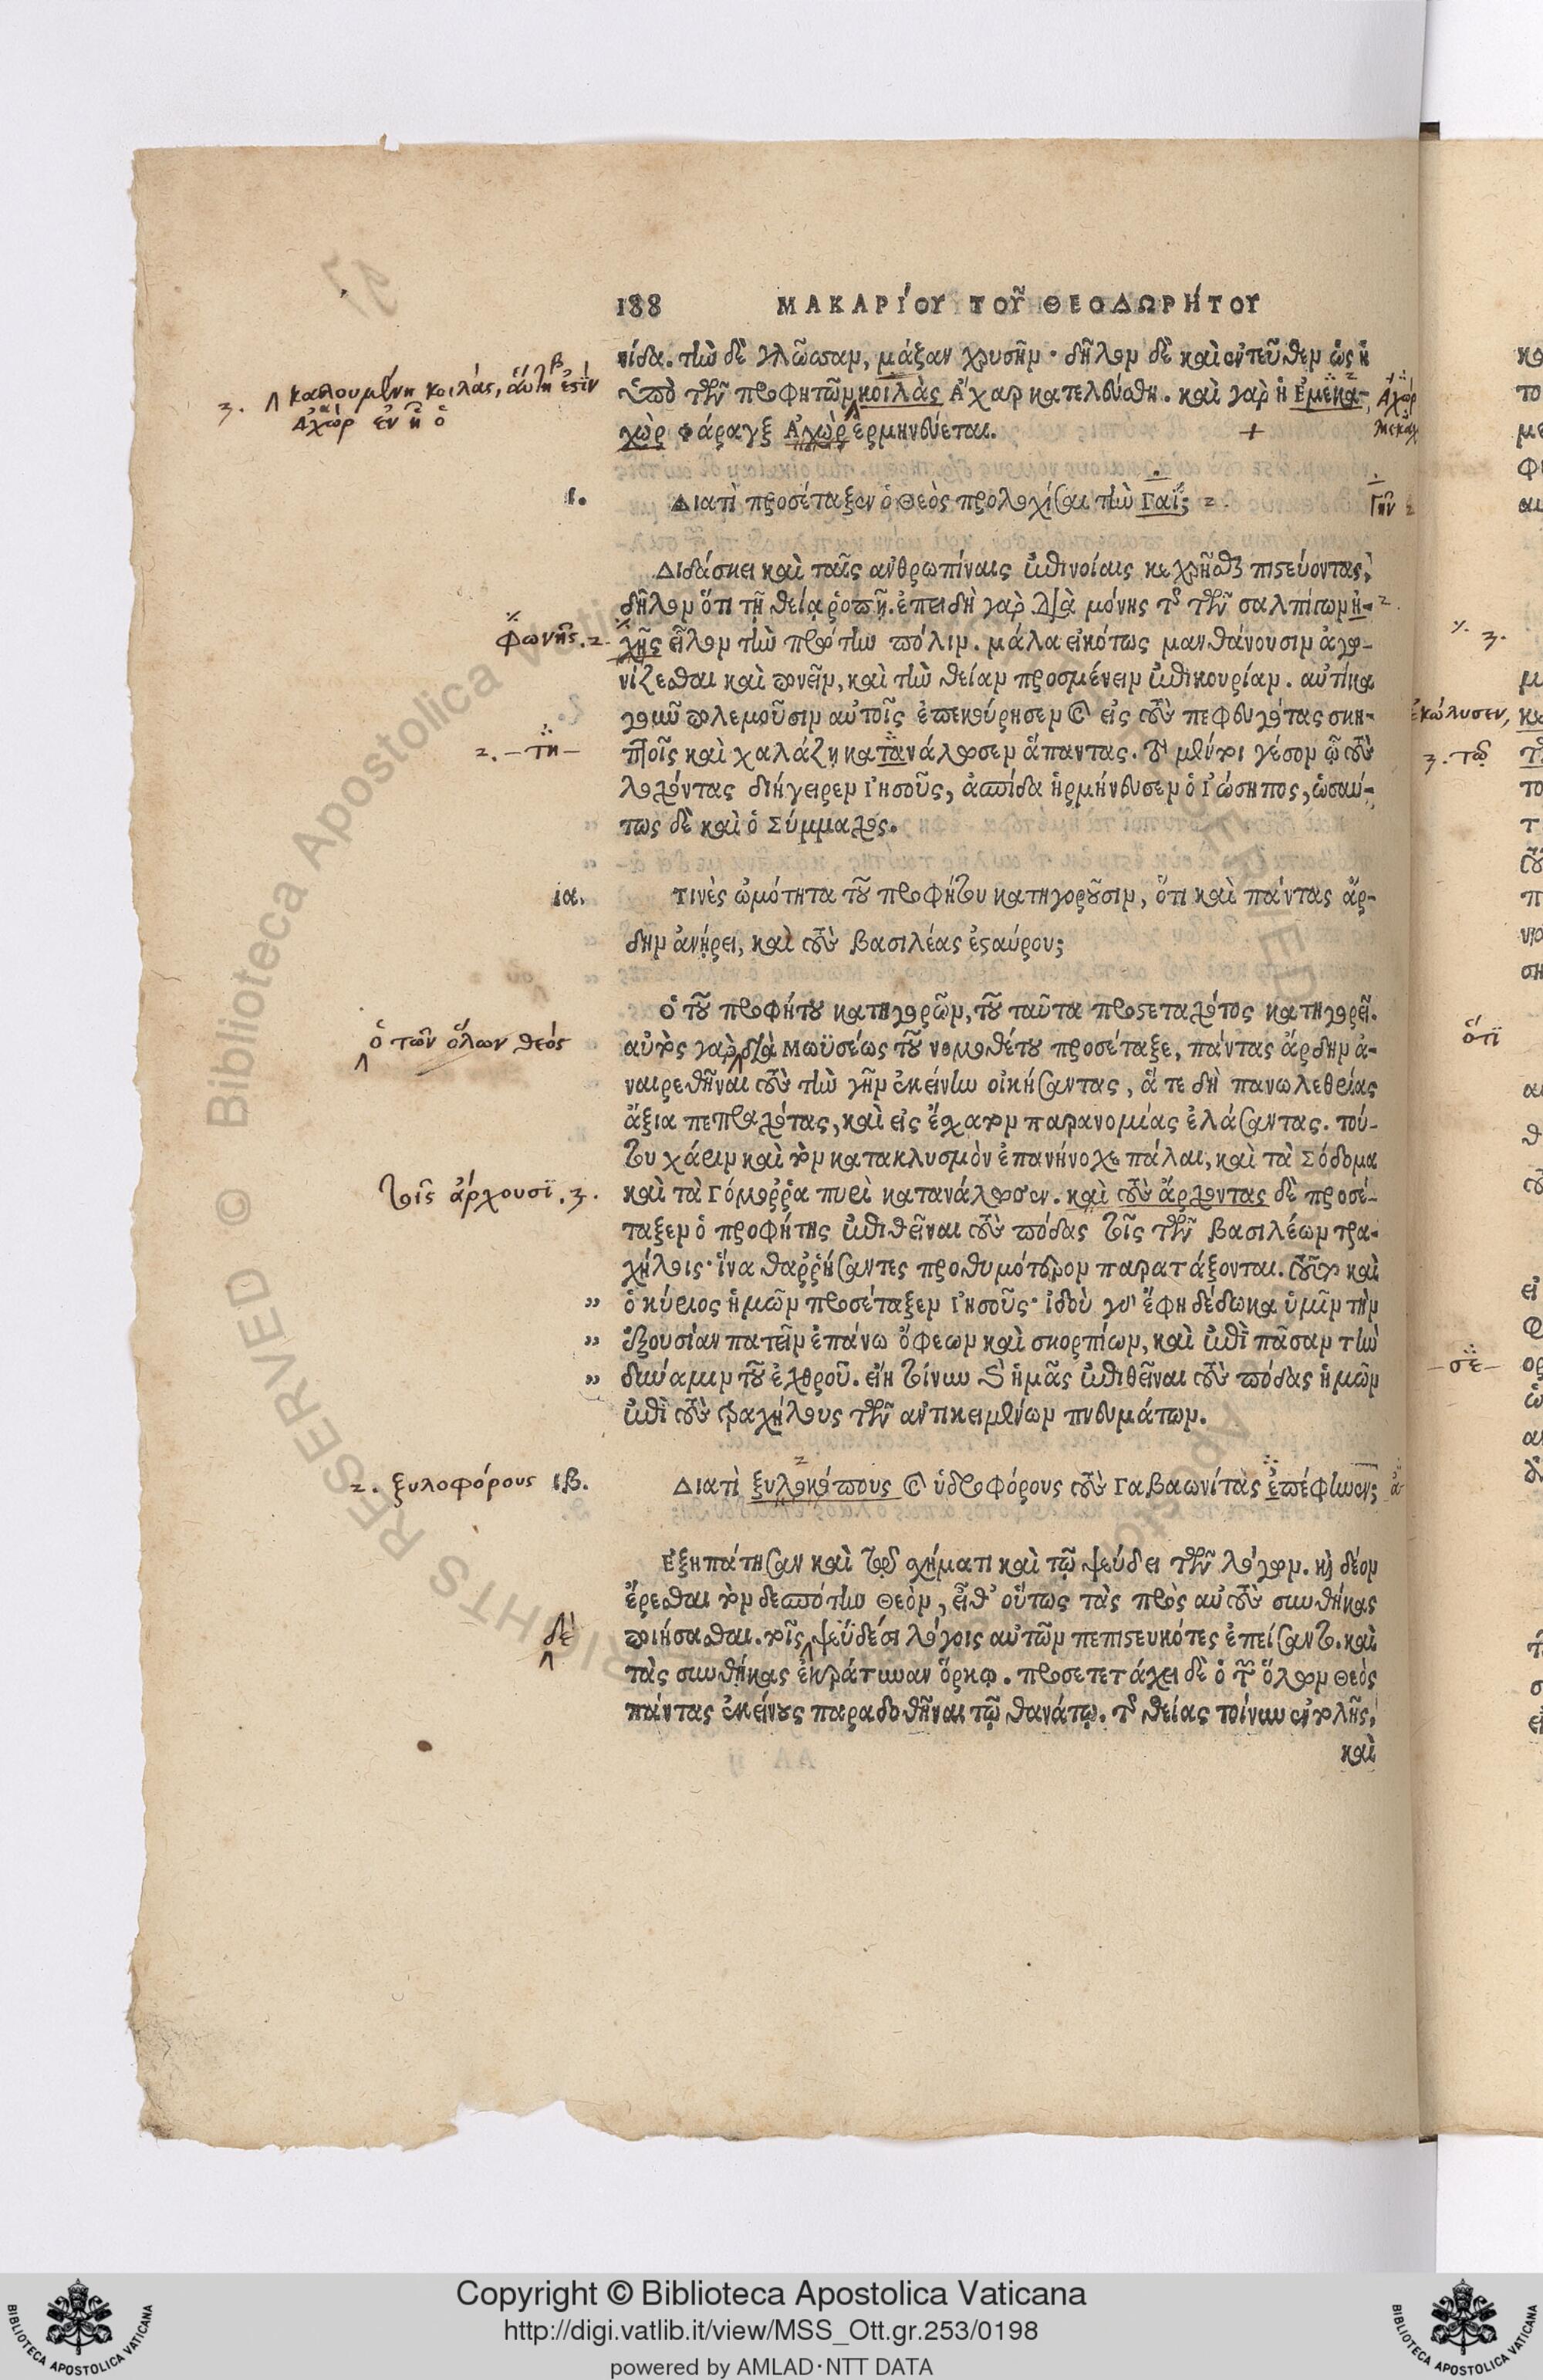 188 ΜΑΚΑΡΊΟΥ ΤΟΥ͂ ΘΕΟΔΩΡΉΤΟΥ
νίδα. τὴν δὲ γλῶσσαν, μάζαν χρυσῆν· δῆλον δὲ καὶ ἐντεῦθεν ὡς ἡ
ὑπὸ τῶν προφητῶν κοιλὰς Ἄχαρ κατελεύσθη. καὶ γὰρ ἡ Ἐμεκα-
χὼρ φάραγξ Ἀχὼρ ἑρμηνεύεται.
3. καλουμένη κοιλάς, αὕτη ἐστὶν
Ἀχὼρ ἐν ᾗ ὁ
Ἀχώρ
ι. Διατὶ προσέταξεν ὁ Θεὸς προλοχίσαι τὴν Γαΐ; 2.
Γῆν 2
Διδάσκει καὶ ταῖς ἀνθρωπίναις ἐπινοίαις κεχρῆσθαι πιστεύοντας,
δῆλον ὅτι τῇ θείᾳ ῥοπῇ. ἐπειδὴ γὰρ διὰ μόνης τῆς τῶν σαλπίγγων ἠ- 2.
φωνῆς. 2.
χῆς εἷλον τὴν πρώτην πόλιν. μάλα εἰκότως μανθάνουσιν ἀγω-
νίζεσθαι καὶ πονεῖν, καὶ τὴν θείαν προσμένειν ἐπικουρίαν. αὐτίκα
γοῦν πολεμοῦσιν αὐτοῖς ἐπεκούρησεν καὶ εἰς τοὺς πεφευγότας σκη-
2. –τη–
πτοῖς καὶ χαλάζῃ κατανάλωσεν ἅπαντας. τὸ μέντοι γέσον ᾧ τοὺς
λοχόντας διήγειρεν Ἰησοῦς, ἀσπίδα ἡρμήνευσεν ὁ Ἰώσηπος, ὡσαύ-
τως δὲ καὶ ὁ Σύμμαχος.
ια. Τινὲς ὠμότητα τοῦ προφήτου κατηγοροῦσιν, ὅτι καὶ πάντας ἄρ-
δην ἀνῄρει, καὶ τοὺς βασιλέας ἐσταύρου;
Ὁ τοῦ προφήτου κατηγορῶν, τοῦ ταῦτα προστεταχότος κατηγορεῖ.
ὁ τῶν ὅλων θεός
αὐτὸς γὰρ διὰ Μωϋσέως τοῦ νομοθέτου προσέταξε, πάντας ἄρδην ἀ-
ναιρεθῆναι τοὺς τὴν γῆν ἐκείνην οἰκήσαντας, ἅ τε δὴ πανωλεθρίας
ἄξια πεπραχότας, καὶ εἰς ἔσχατον παρανομίας ἐλάσαντας. τού-
του χάριν καὶ τὸν κατακλυσμὸν ἐπανήνοχε πάλαι, καὶ τὰ Σόδομα
τοῖς ἄρχουσϊ. 3.
καὶ τὰ Γόμοῤῥα πυρὶ κατανάλωσεν. καὶ τοὺς ἄρχοντας δὲ προσέ-
ταξεν ὁ προφήτης ἐπιθεῖναι τοὺς πόδας τοῖς τῶν βασιλέων τρα-
χήλοις· ἵνα θαῤῥήσαντες προθυμότερον παρατάξονται. τοῦτο καὶ
” ὁ κύριος ἡμῶν προσέταξεν Ἰησοῦς· ἰδοὺ γὰρ ἔφη δέδωκα ὑμῖν τὴν
” ἐξουσίαν πατεῖν ἐπάνω ὄφεων καὶ σκορπίων, καὶ ἐπὶ πᾶσαν τὴν
” δύναμιν τοῦ ἐχθροῦ. εἴη τοίνυν καὶ ἡμᾶς ἐπιθεῖναι τοὺς πόδας ἡμῶν
ἐπὶ τοὺς τραχήλους τῶν ἀντικειμένων πνευμάτων.
2. ξυλοφόρους ιβ. Διατὶ ξυλοκόπους καὶ ὑδροφόρους τοὺς Γαβαωνίτας ἐπέφηνεν;
Ἐξηπάτησαν καὶ τῷ σχήματι καὶ τῷ ψεύδει τῶν λόγων. καὶ δέον
ἔρεσθαι τὸν δεσπότην Θεὸν, εἶθ’ οὕτως τὰς πρὸς αὐτοὺς συνθήκας
δὲ
ποιήσασθαι. τοῖς ψεϋδέσι λόγοις αὐτῶν πεπιστευκότες ἐπείσαντο. καὶ
τὰς συνθήκας ἐκράτυναν ὅρκῳ. προσετετάχει δὲ ὁ τῶν ὅλων Θεὸς
πάντας ἐκείνους παραδοθῆναι τῷ θανάτῳ. τῆς θείας τοίνυν ἐντολῆς,
καὶ
ἐκώλυσεν,
3. τῷ
ὅτϊ
–σε–
Biblioteca Apostolica Vaticana
RIGHTS RESERVED © Biblioteca Apostolica Vaticana
Copyright © Biblioteca Apostolica Vaticana
http://digi.vatlib.it/view/MSS_Ott.gr.253/0198
powered by AMLAD·NTT DATA
BIBLIOTECA APOSTOLICA VATICANA
BIBLIOTECA APOSTOLICA VATICANA